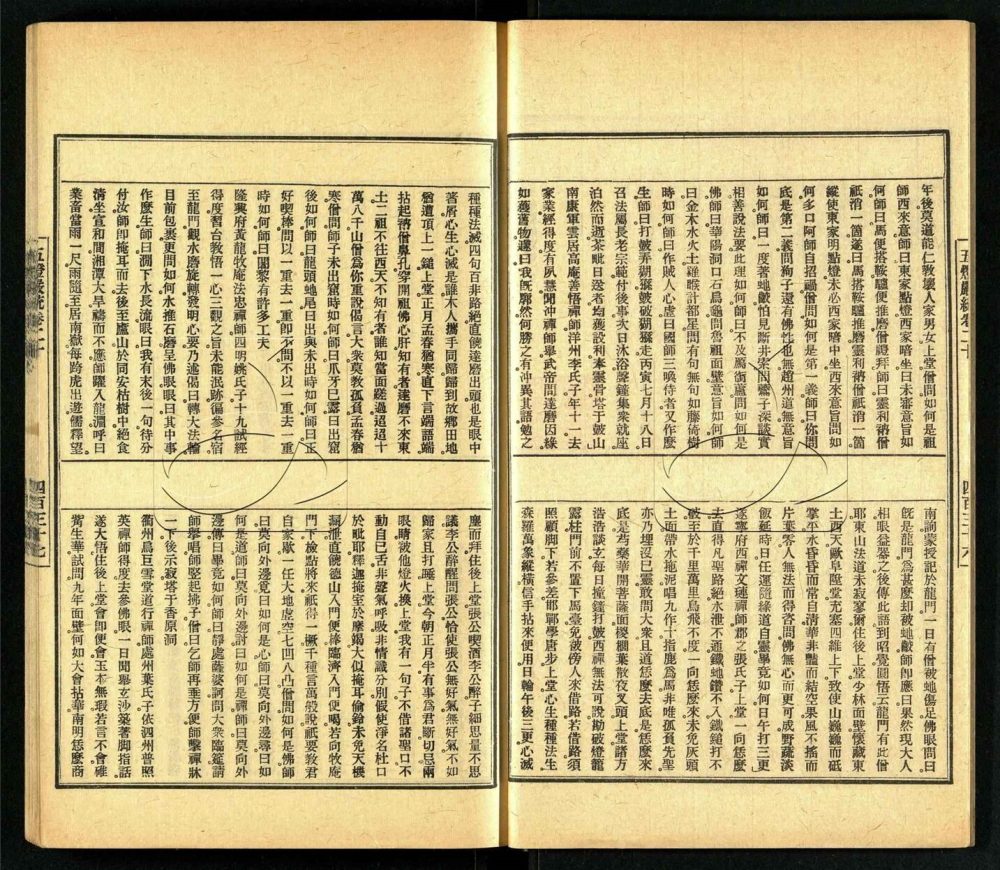 五燈嚴統卷二十
四百三十六
年後莫道能仁教壞人家男女上堂僧問如何是祖
師西來意師曰東家點燈西家暗坐曰未審意旨如
何師曰馬便搭鞍驢便推磨僧禮拜師曰靈利衲僧
祇消一箇遂曰馬搭鞍驢推磨靈利衲僧祇消一箇
縱使東家明點燈未必西家暗中坐西來意旨問如
何多口阿師自招禍僧問如何是第一義師曰你問
底是第二義問狗子還有佛性也無趙州道無意旨
如何師曰一度著蛇齩怕見斷井索問鷺子深談實
相善說法要此理如何師曰不及雁銜蘆問如何是
佛師曰華陽洞口石烏龜問魯祖面壁意旨如何師
曰金木水火土羅睺計都星問有句無句如藤倚樹
時如何師曰作賊人心虛曰國師三喚侍者又作麼
生師曰打皷弄猢猻皷破猢猻走丙寅七月十八日
召法屬長老宗範付後事次日沐浴聲鐘集衆就座
泊然而逝茶毗日送者均獲設利奉靈骨塔于皷山
南康軍雲居高庵善悟禪師洋州李氏子年十一去
家業經得度有夙慧聞沖禪師舉武帝問達磨因緣
如獲舊物遽曰我旣廓然何勝之有沖異其語勉之
南詢蒙授記於龍門一日有僧被蛇傷足佛眼問曰
旣是龍門爲甚麼却被蛇齩師卽應曰果然現大人
相眼益器之後傳此語到昭覺圓悟云龍門有此僧
耶東山法道未寂寥爾住後上堂少林面壁懷藏東
土西天歐阜陞堂充塞四維上下致使山巍巍而砥
掌平水昏昏而常自淸華非豔而結空果風不搖而
片葉零人無法而得咨問佛無心而更可成野蔬淡
飯延時日任運隨緣道自靈畢竟如何日午打三更
遂寧府西禪文璉禪師郡之張氏子上堂一向恁麼
去直得凡聖路絕水泄不通鐵蛇鑽不入鐵鎚打不
破至於千里萬里鳥飛不度一向恁麼來未免灰頭
土面帶水拖泥唱九作十指鹿爲馬非唯孤負先聖
亦乃埋沒己靈敢問大衆且道恁麼去底是恁麼來
底是芍藥華開菩薩面椶櫚葉散夜叉頭上堂諸方
浩浩談玄每日撞鐘打皷西禪無法可說勘破燈籠
露柱門前不置下馬臺免被傍人來借路若借路須
照顧脚下若參差邯鄲學唐步上堂心生種種法生
森羅萬象縱橫信手拈來便用日輪午後三更心滅
種種法滅四句百非路絕直饒達磨出頭也是眼中
著屑心生心滅是誰木人攜手同歸歸到故鄉田地
猶遭頂上一鎚上堂正月孟春猶寒直下言端語端
拈起衲僧鼻孔穿開祖佛心肝知有者達磨不來東
土二祖不往西天不知有者誰知當面蹉過迢迢十
萬八千山僧爲你重說偈言大衆莫敎孤負孟春猶
寒僧問師子未出窟時如何師曰爪牙已露曰出窟
後如何師曰龍頭蛇尾曰出與未出時如何師曰正
好喫棒問以一重去一重卽不問不以一重去一重
時如何師曰闍黎有許多工夫
隆興府黃龍牧庵法忠禪師四明姚氏子十九試經
得度習台敎悟一心三觀之旨未能泯跡徧參名宿
至龍門觀水磨旋轉發明心要乃述偈曰轉大法輪
目前包裹更問如何水推石磨呈佛眼眼曰其中事
作麼生師曰澗下水長流眼曰我有末後一句待分
付汝師卽掩耳而去後至廬山於同安枯樹中絕食
淸坐宣和間湘潭大旱禱而不應師躍入龍淵呼曰
業畜當雨一尺雨隨至居南嶽每跨虎出遊儒釋望
塵而拜住後上堂張公喫酒李公醉子細思量不思
議李公醉醒問張公恰使張公無好氣無好氣不如
歸家且打睡上堂今朝正月半有事爲君斷切忌兩
眼睛被他燈火換上堂我有一句子不借諸聖口不
動自己舌非聲氣呼吸非情識分別假使淨名杜口
於毗耶釋迦掩室於摩竭大似掩耳偷鈴未免天機
漏泄直饒德山入門便棒臨濟入門便喝若向牧庵
門下檢點將來祇得一橛千種言萬般說祇要敎君
自家歇一任大地虛空七凹八凸僧問如何是佛師
曰莫向外邊覓曰如何是心師曰莫向外邊尋曰如
何是道師曰莫向外邊討曰如何是禪師曰莫向外
邊傳曰畢竟如何師曰靜處薩婆訶問大衆臨筵請
師擧唱師竪起拂子僧曰乞師再垂方便師擊禪牀
一下後示寂塔于香原洞
衢州烏巨雪堂道行禪師處州葉氏子依泗州普照
英禪師得度去參佛眼一日聞擧玄沙築著脚指話
遂大悟住後上堂會卽便會玉本無瑕若言不會碓
觜生華試問九年面壁何如大會拈華南明恁麼商
五燈嚴統卷二十
四百三十七